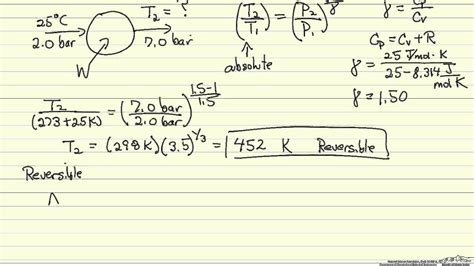 25°C
2.0 bar
T₂ = ?
7.0 bar
W
(T₂/T₁) = (P₂/P₁)^(γ-1)/γ
absolute
γ = Cp/Cv
Cp = Cv + R
γ = 25 J/mol·K / 25 - 8.314 J/mol K
γ = 1.50
T₂/(273+25K) = (7.0 bar/2.0 bar)^(1.5-1)/1.5
T₂ = (298K)(3.5)^1/3 = 452 K Reversible
Reversible